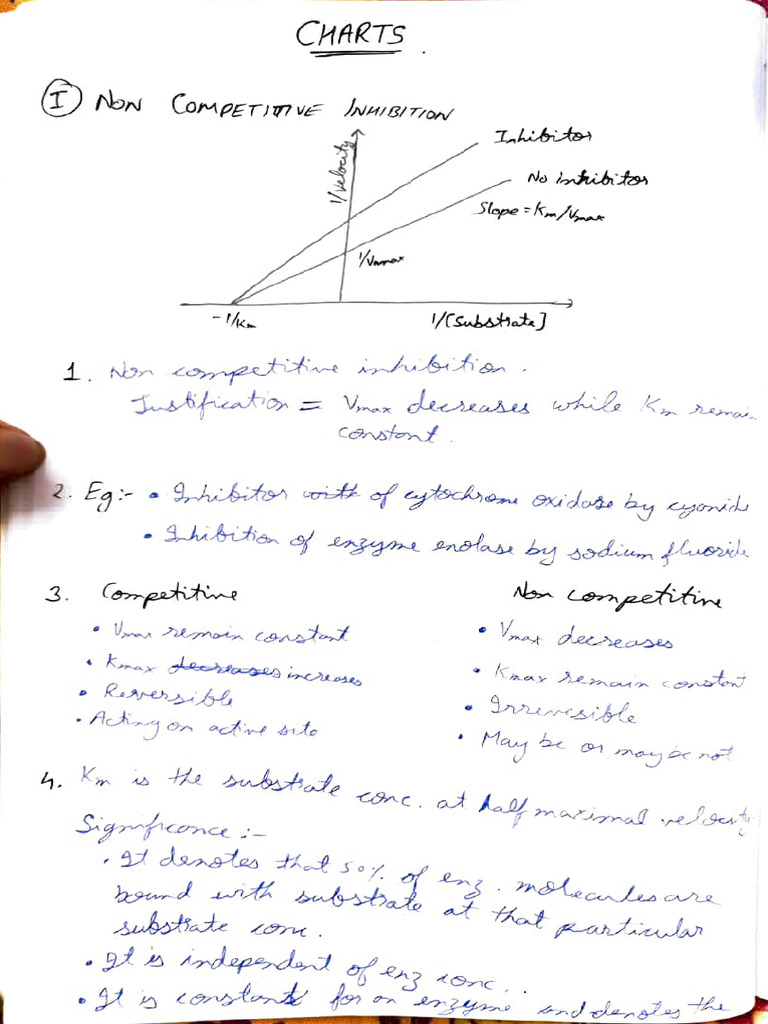 CHARTS
I NON COMPETITIVE INHIBITION
Inhibitor
1/Velocity
No inhibitor
Slope = Km/Vmax
1/Vmax
-1/Km
1/[Substrate]
1. Non competitive inhibition.
Justification = Vmax decreases while Km remain
constant.
2. Eg:- • Inhibitor with of cytochrome oxidase by cyonide
• Inhibition of enzyme enolase by sodium fluoride
3. Competitive
Non competitive
• Vmax remain constant
• Vmax decreases
• Kmax decreases increases
• Kmax remain constant
• Reversible
• Irreversible
• Acting on active site
• May be or may be not
4. Km is the substrate conc. at half maximal velocity
Significance :-
• It denotes that 50% of enz. molecules are
bound with substrate at that particular
substrate conc.
• It is independent of enz conc..
• It is constant for an enzyme and denotes the